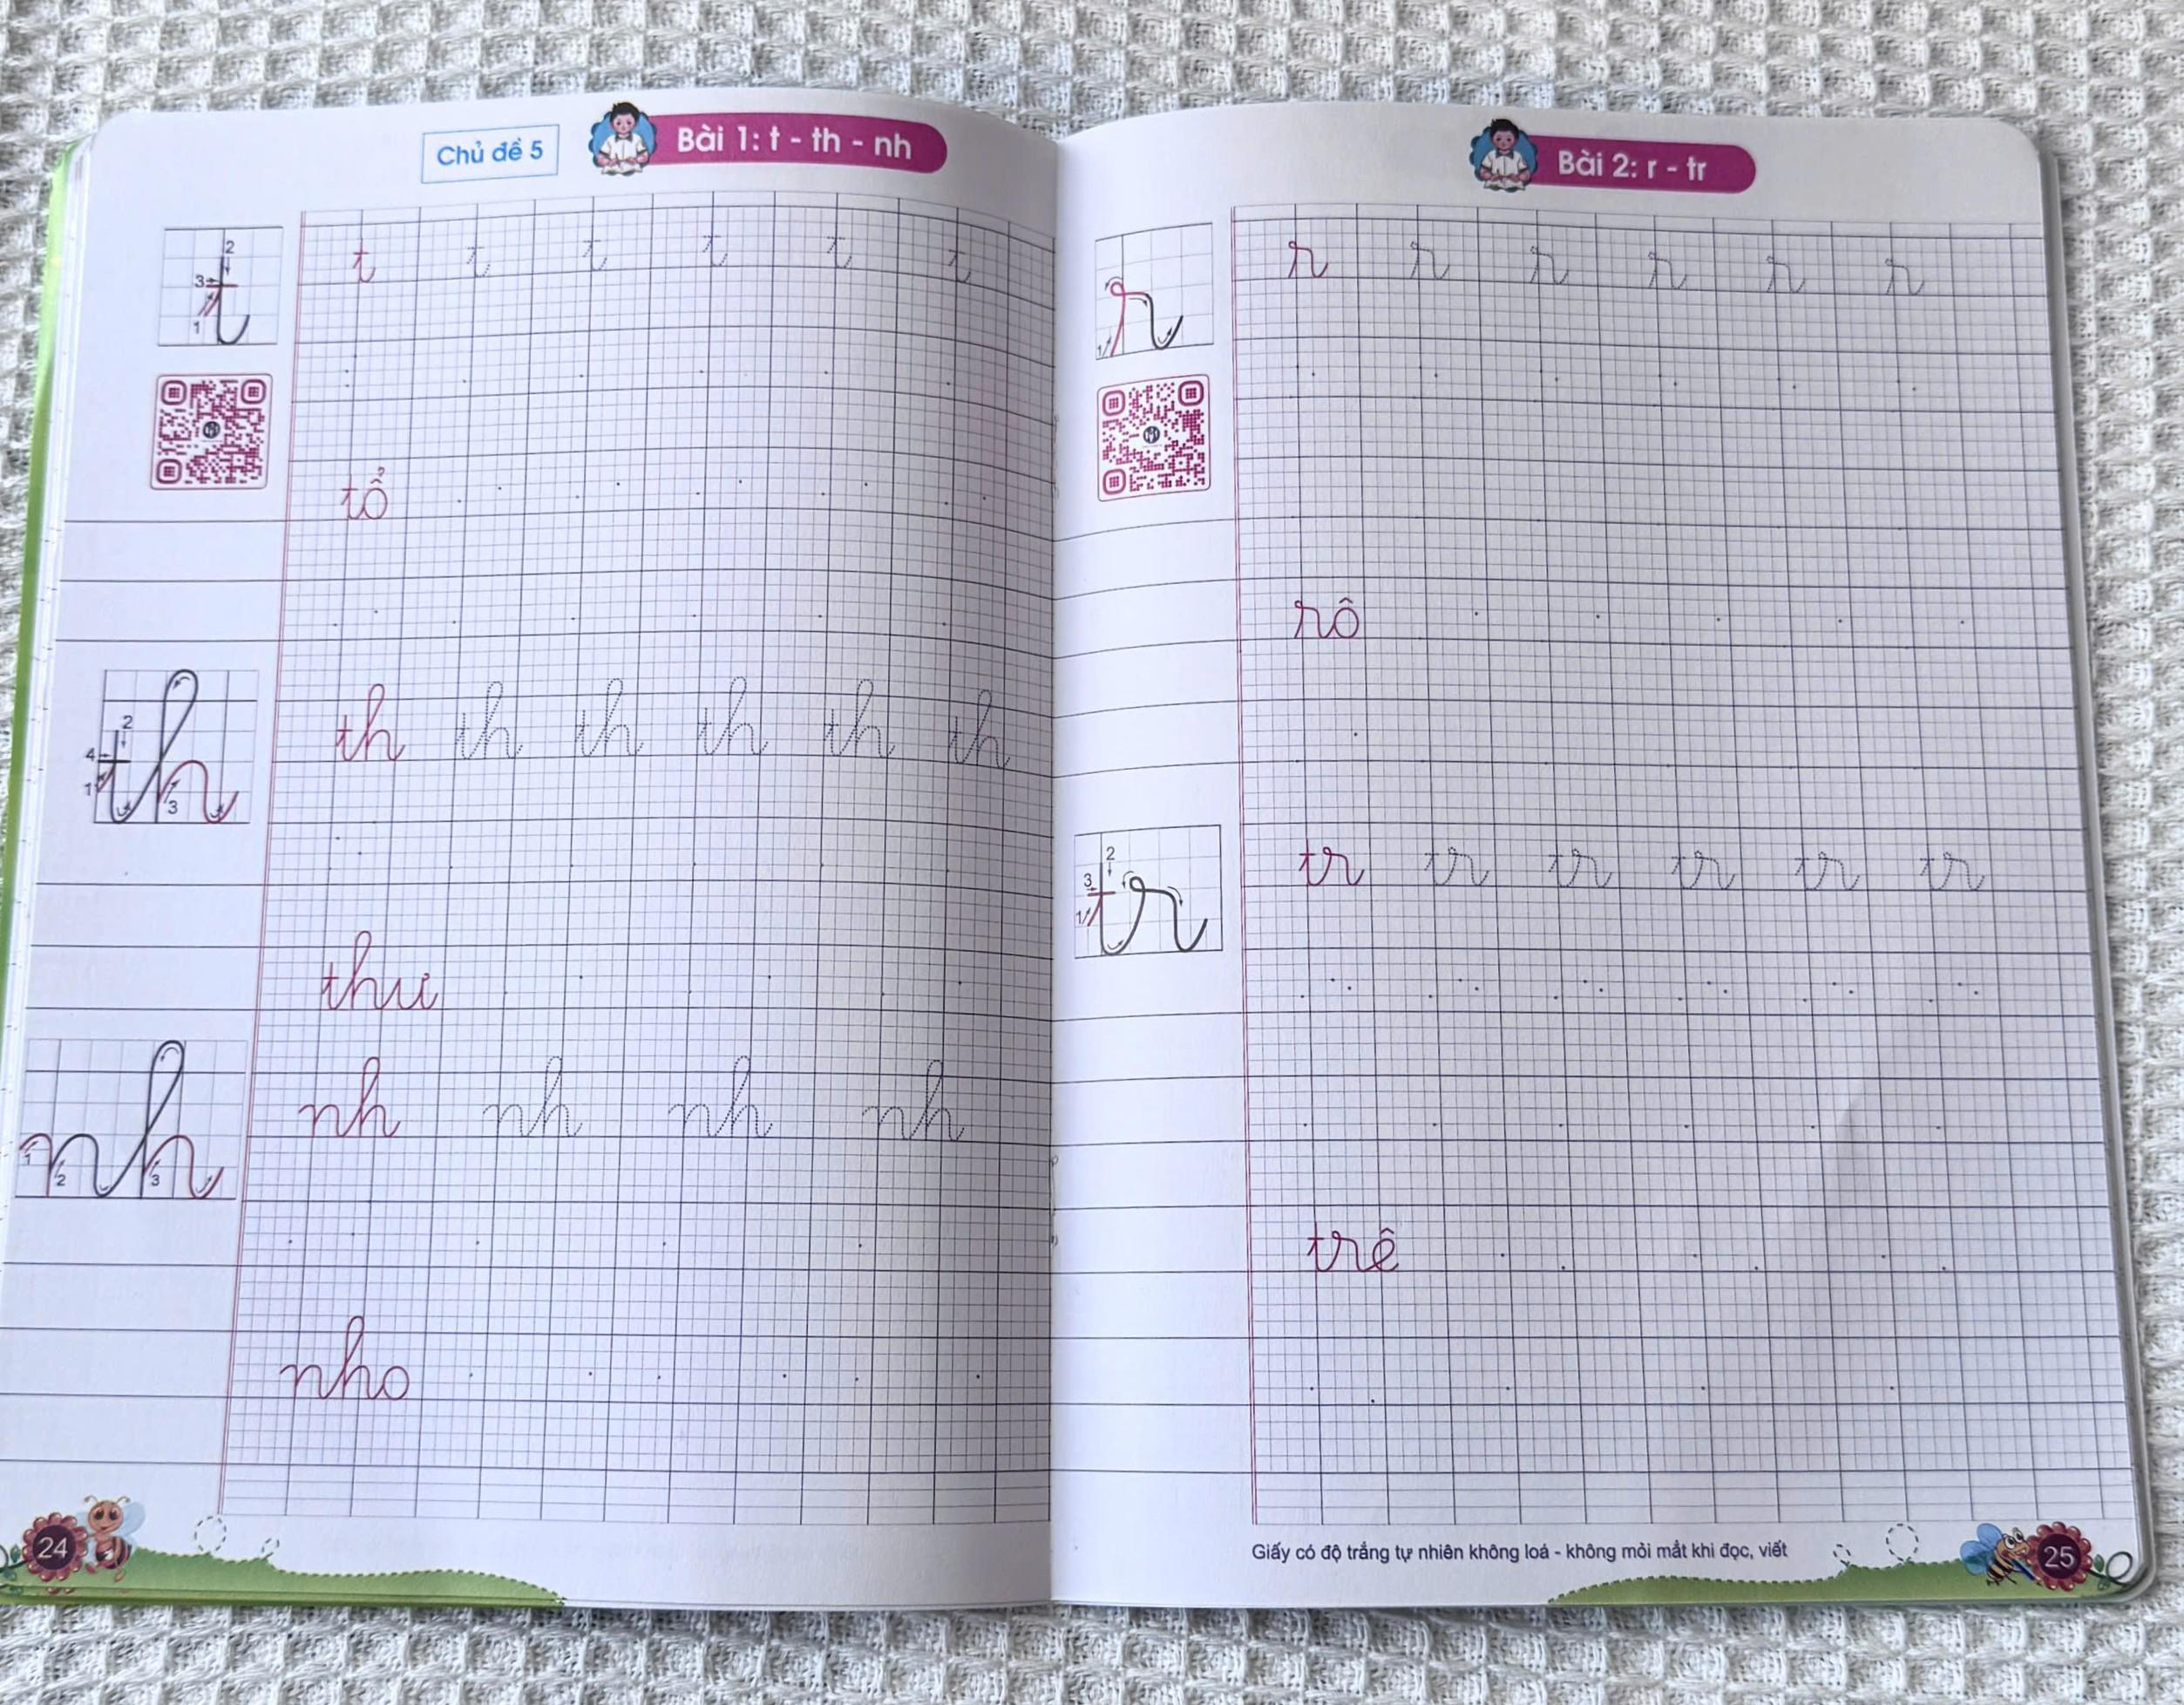 Chủ đề 5
Bài 1: t - th - nh
2
3
1
t
t t t t t t
tổ
2
4
1
3
th
th th th th th th
thư
1
2
3
nh
nh nh nh nh
nho
24
Bài 2: r - tr
1
r
r r r r r r
rô
2
3
1
tr
tr tr tr tr tr tr
trê
Giấy có độ trắng tự nhiên không loá - không mỏi mắt khi đọc, viết
25